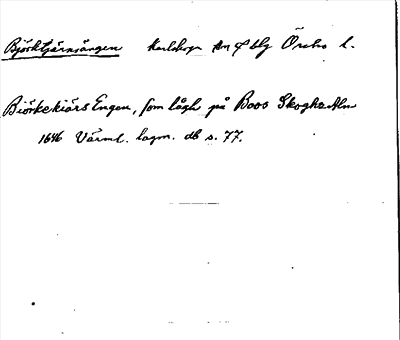 Björktjärnsängen Karlskoga sn o blg Örebro l.
Biörkekiärs Engen, som lågh på Boos Skogh
1646 Värml. lagm. db s. 77.